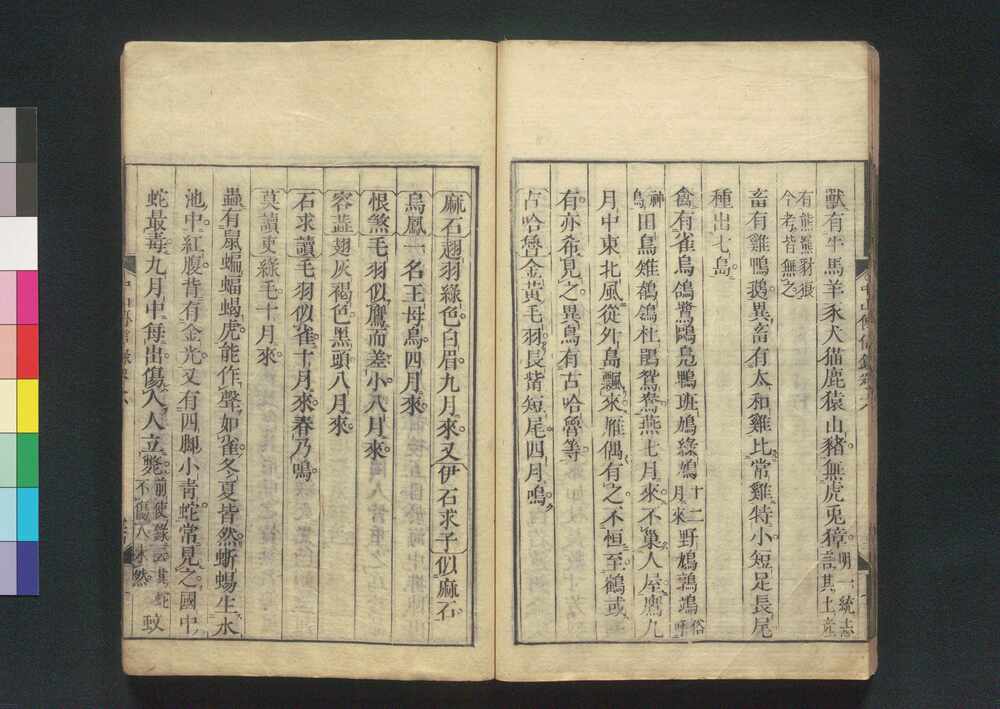 獸有牛馬羊豕犬猫鹿猿山豬無虎兎獐明一統志
言其土産
有熊羆豺狼
今考皆無之
畜有雞鴨鵝異畜有太和雞比常雞特小短足長尾
種出七島
禽有雀烏鴿鷺鷗鳧鴨班鳩綠鳩十二
月來野鳩鶉鴻俗
呼
神
鳥田鳥雉鶺鴒杜鵑鴛鴦燕七月來不巢人屋鷹九
月中東北風從外島飄來雁偶有之不恒至鶴或
有亦希見之異鳥有古哈魯等
古哈魯金黃毛羽長嘴短尾四月鳴
麻石趐羽綠色白眉九月來又伊石求子似麻石
烏鳳一名王母鳥四月來
恨煞毛羽似鷹而差小八月來
容蓝翅灰褐色黑頭八月來
石求讀毛羽似雀十月來春乃鳴
莫讀史綠毛十月來
蟲有鼠蝙蝠蝎虎能作聲如雀冬夏皆然蜥蜴生水
池中紅腹背有金光又有四脚小青蛇常見之國中
蛇最毒九月中每出傷人人立斃前使錄云其蛇
不傷人不然蚊